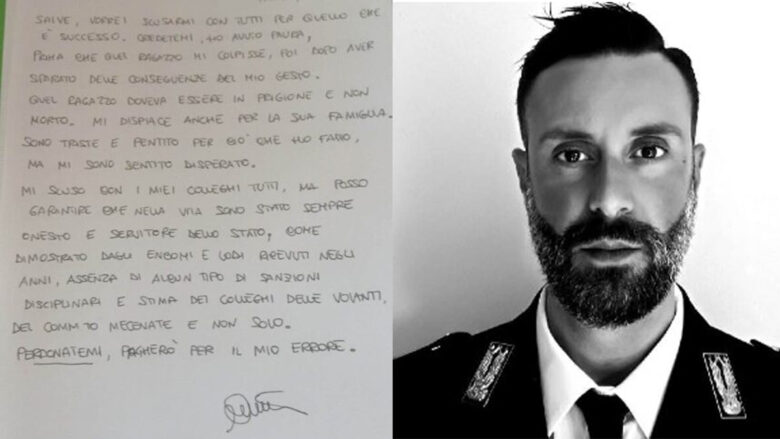 SALVE, VORREI SCUSARMI CON TUTTI PER QUELLO CHE
È SUCCESSO. CREDETEMI, HO AVUTO PAURA,
PRIMA CHE QUEL RAGAZZO MI COLPISSE, POI DOPO AVER
SPARATO DELLE CONSEGUENZE DEL MIO GESTO.
QUEL RAGAZZO DOVEVA ESSERE IN PRIGIONE E NON
MORTO. MI DISPIACE ANCHE PER LA SUA FAMIGLIA.
SONO TRISTE E PENTITO PER CIÒ CHE HO FATTO,
MA MI SONO SENTITO DISPERATO.
MI SCUSO CON I MIEI COLLEGHI TUTTI, MA POSSO
GARANTIRE CHE NELLA VITA SONO STATO SEMPRE
ONESTO E SERVITORE DELLO STATO, COME
DIMOSTRATO DAGLI ENCOMI E LODI RICEVUTI NEGLI
ANNI, ASSENZA DI ALCUN TIPO DI SANZIONI
DISCIPLINARI E STIMA DEI COLLEGHI DELLE VOLANTI,
DEL COMM.TO MECENATE E NON SOLO.
PERDONATEMI, PAGHERÒ PER IL MIO ERRORE.